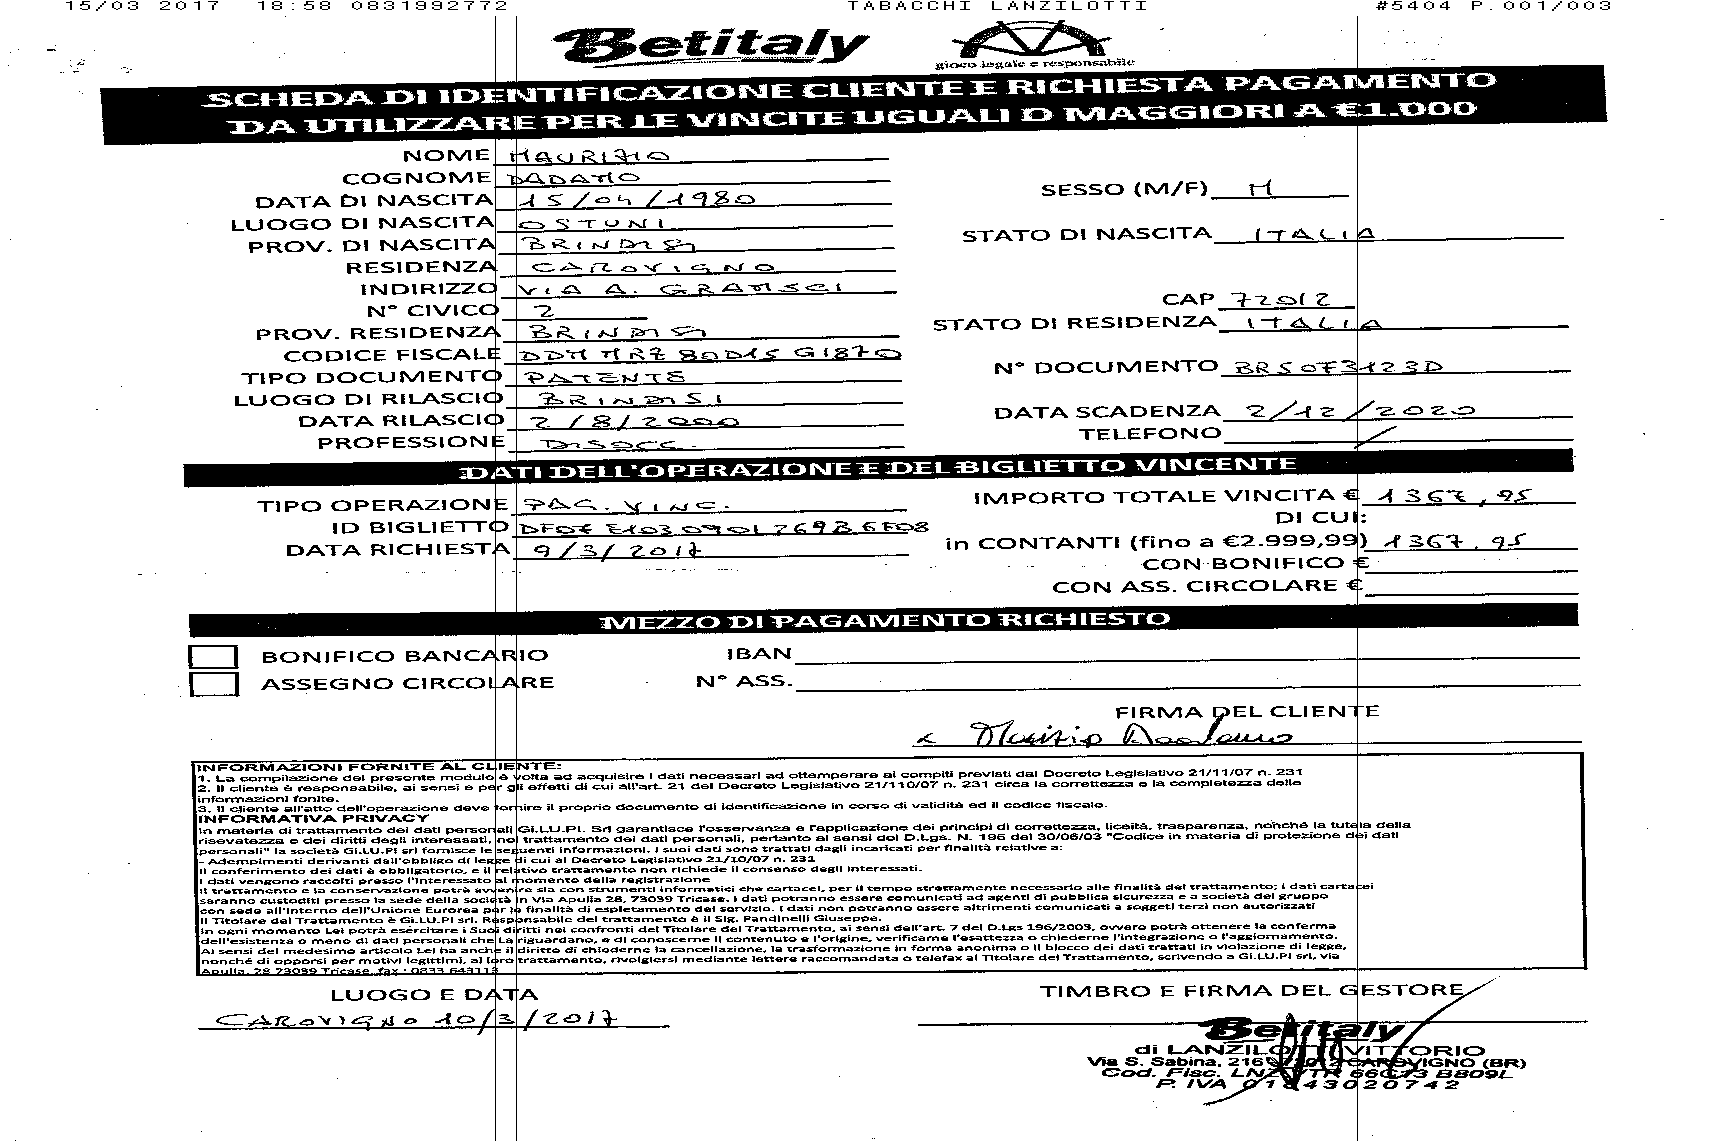 15/03 2017 18:58 0831992772 TABACCHI LANZILOTTI #5404 P.001/003
Betitaly
gioco legale e responsabile
SCHEDA DI IDENTIFICAZIONE CLIENTE E RICHIESTA PAGAMENTO
DA UTILIZZARE PER LE VINCITE UGUALI O MAGGIORI A €1.000
NOME MAURIZIO
COGNOME DADAMO
SESSO (M/F) M
DATA DI NASCITA 15/04/1980
LUOGO DI NASCITA OSTUNI
STATO DI NASCITA ITALIA
PROV. DI NASCITA BRINDISI
RESIDENZA CAROVIGNO
INDIRIZZO VIA A. GRAMSCI
CAP 72012
N° CIVICO 2
PROV. RESIDENZA BRINDISI
STATO DI RESIDENZA ITALIA
CODICE FISCALE DDM MRZ 80D15 G187O
TIPO DOCUMENTO PATENTE
N° DOCUMENTO BR5073123D
LUOGO DI RILASCIO BRINDISI
DATA RILASCIO 2/8/2000
DATA SCADENZA 2/12/2020
TELEFONO /
PROFESSIONE DISOCC.
DATI DELL'OPERAZIONE E DEL BIGLIETTO VINCENTE
TIPO OPERAZIONE PAG. VINC.
IMPORTO TOTALE VINCITA € 1367,95
DI CUI:
ID BIGLIETTO
DATA RICHIESTA 9/3/2017
in CONTANTI (fino a €2.999,99) 1367,95
CON BONIFICO €
CON ASS. CIRCOLARE €
MEZZO DI PAGAMENTO RICHIESTO
BONIFICO BANCARIO IBAN
ASSEGNO CIRCOLARE N° ASS.
FIRMA DEL CLIENTE
x Maurizio Dadamo
INFORMAZIONI FORNITE AL CLIENTE:
1. La compilazione del presente modulo è volta ad acquisire i dati necessari ad ottemperare ai compiti previsti dal Decreto Legislativo 21/11/07 n. 231
2. Il cliente è responsabile, ai sensi e per gli effetti di cui all'art. 21 del Decreto Legislativo 21/110/07 n. 231 circa la correttezza e la completezza delle
informazioni fonite.
3. Il cliente all'atto dell'operazione deve fornire il proprio documento di identificazione in corso di validità ed il codice fiscale.
INFORMATIVA PRIVACY
In materia di trattamento dei dati personali GI.LU.PI. Srl garantisce l'osservanza e l'applicazione dei principi di correttezza, liceità, trasparenza, nonché la tutela della
riservatezza e dei diritti degli interessati, nel trattamento dei dati personali, pertanto ai sensi del D.Lgs. N. 196 del 30/06/03 "Codice in materia di protezione dei dati
personali" la società GI.LU.PI srl fornisce le seguenti informazioni. I suoi dati sono trattati dagli incaricati per finalità relative a:
- Adempimenti derivanti dall'obbligo di legge di cui al Decreto Legislativo 21/10/07 n. 231
Il conferimento dei dati è obbligatorio, e il relativo trattamento non richiede il consenso degli interessati.
I dati vengono raccolti presso l'interessato al momento della registrazione
Il trattamento e la conservazione potrà avvenire sia con strumenti informatici che cartacei, per il tempo strettamente necessario alle finalità del trattamento; i dati cartacei
saranno custoditi presso la sede della società in Via Apulia 28, 73039 Tricase. I dati potranno essere comunicati ad agenti di pubblica sicurezza e a società del gruppo
con sede all'interno dell'Unione Eurorea per le finalità di espletamento del servizio. I dati non potranno essere altrimenti comunicati a soggeti terzi non autorizzati
Il Titolare del Trattamento è GI.LU.PI srl. Responsabile del trattamento è il Sig. Pandinelli Giuseppe.
In ogni momento Lei potrà esercitare i Suoi diritti nei confronti del Titolare del Trattamento, ai sensi dell'art. 7 del D.Lgs 196/2003, ovvero potrà ottenere la conferma
dell'esistenza o meno di dati personali che La riguardano, e di conoscerne il contenuto e l'origine, verificarne l'esattezza o chiederne l'integrazione o l'aggiornamento.
Ai sensi del medesimo articolo Lei ha anche il diritto di chiederne la cancellazione, la trasformazione in forma anonima o il blocco dei dati trattati in violazione di legge,
nonché di opporsi per motivi legittimi, al loro trattamento, rivolgiersi mediante lettere raccomandata o telefax al Titolare del Trattamento, scrivendo a GI.LU.PI srl, via
Apulia, 28 73039 Tricase, fax : 0833 643113
LUOGO E DATA
TIMBRO E FIRMA DEL GESTORE
CAROVIGNO 10/3/2017
Betitaly
di LANZILOTTI VITTORIO
Via S. Sabina, 216 72012 CAROVIGNO (BR)
Cod. Fisc. LNZ VTR 66C13 B809L
P. IVA 01843020742